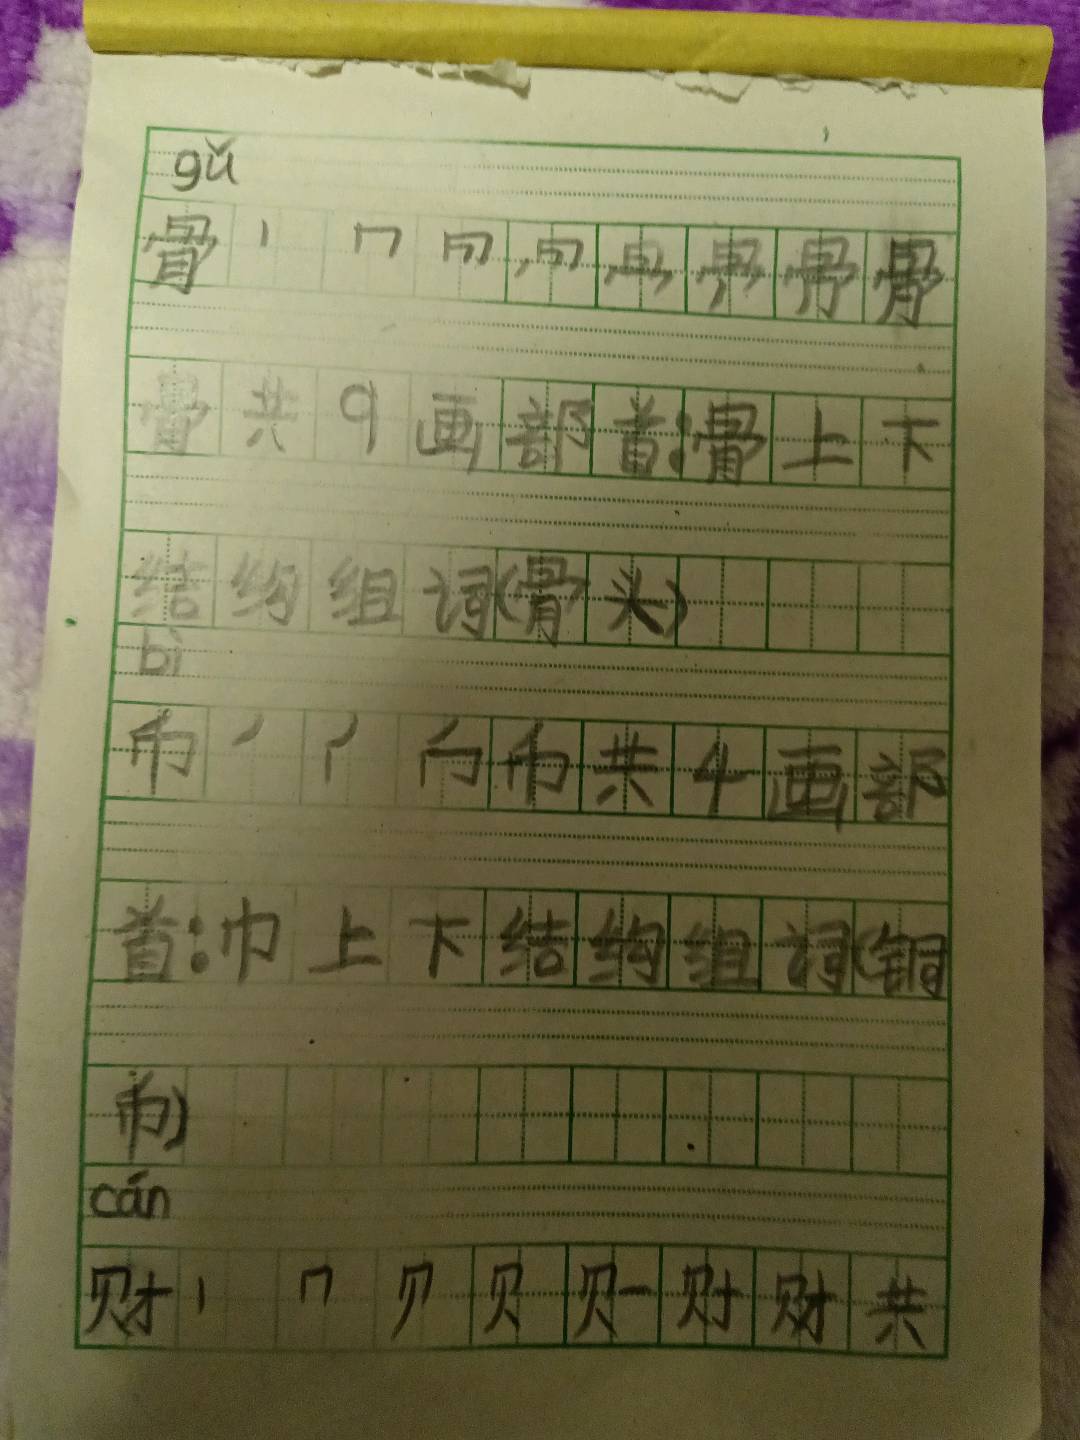 gǔ
骨 丨 冖 骨
骨共9画部首:骨上下
结构组词(骨头)
bì
币 丿 币共4画部
首:巾上下结构组词(铜
币)
cán
财 丨 冂 贝 财 共